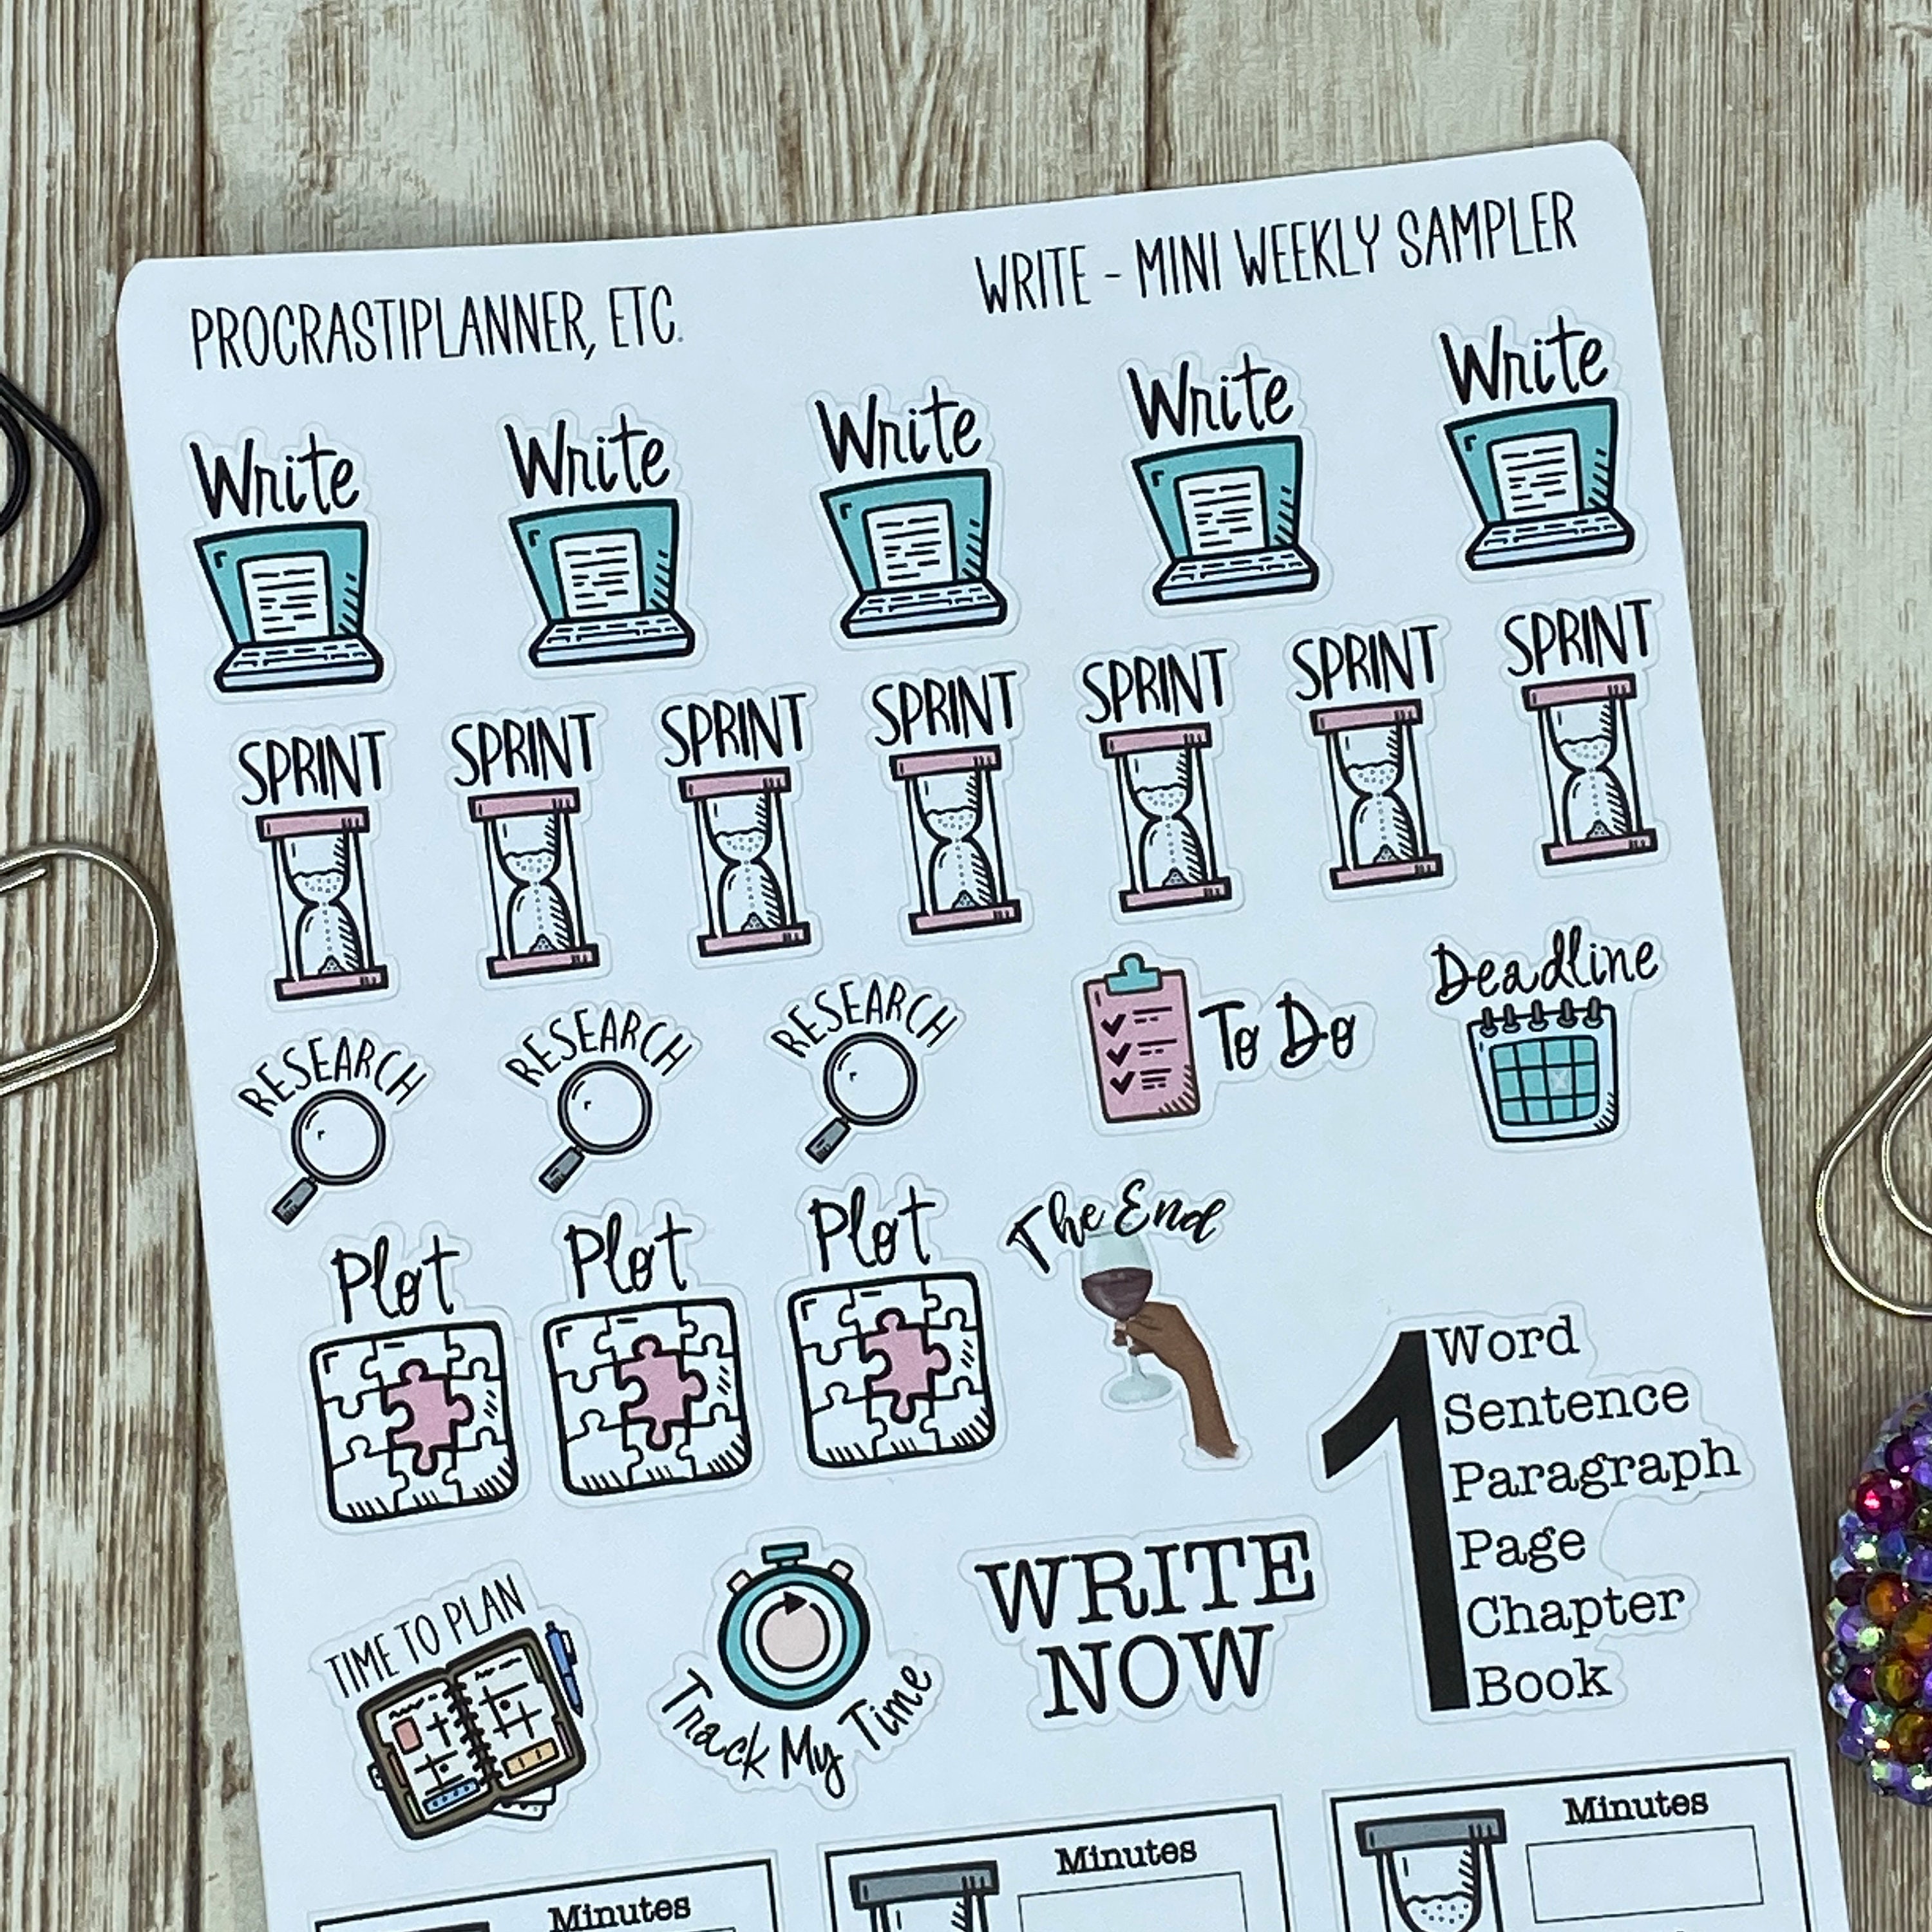 PROCRASTIPLANNER, ETC.
WRITE - MINI WEEKLY SAMPLER
Write
Write
Write
Write
Write
SPRINT
SPRINT
SPRINT
SPRINT
SPRINT
SPRINT
SPRINT
RESEARCH
RESEARCH
RESEARCH
To Do
Deadline
X
Plot
Plot
Plot
The End
1
Word
Sentence
Paragraph
Page
Chapter
Book
TIME TO PLAN
Track My Time
WRITE
NOW
Minutes
Minutes
Minutes